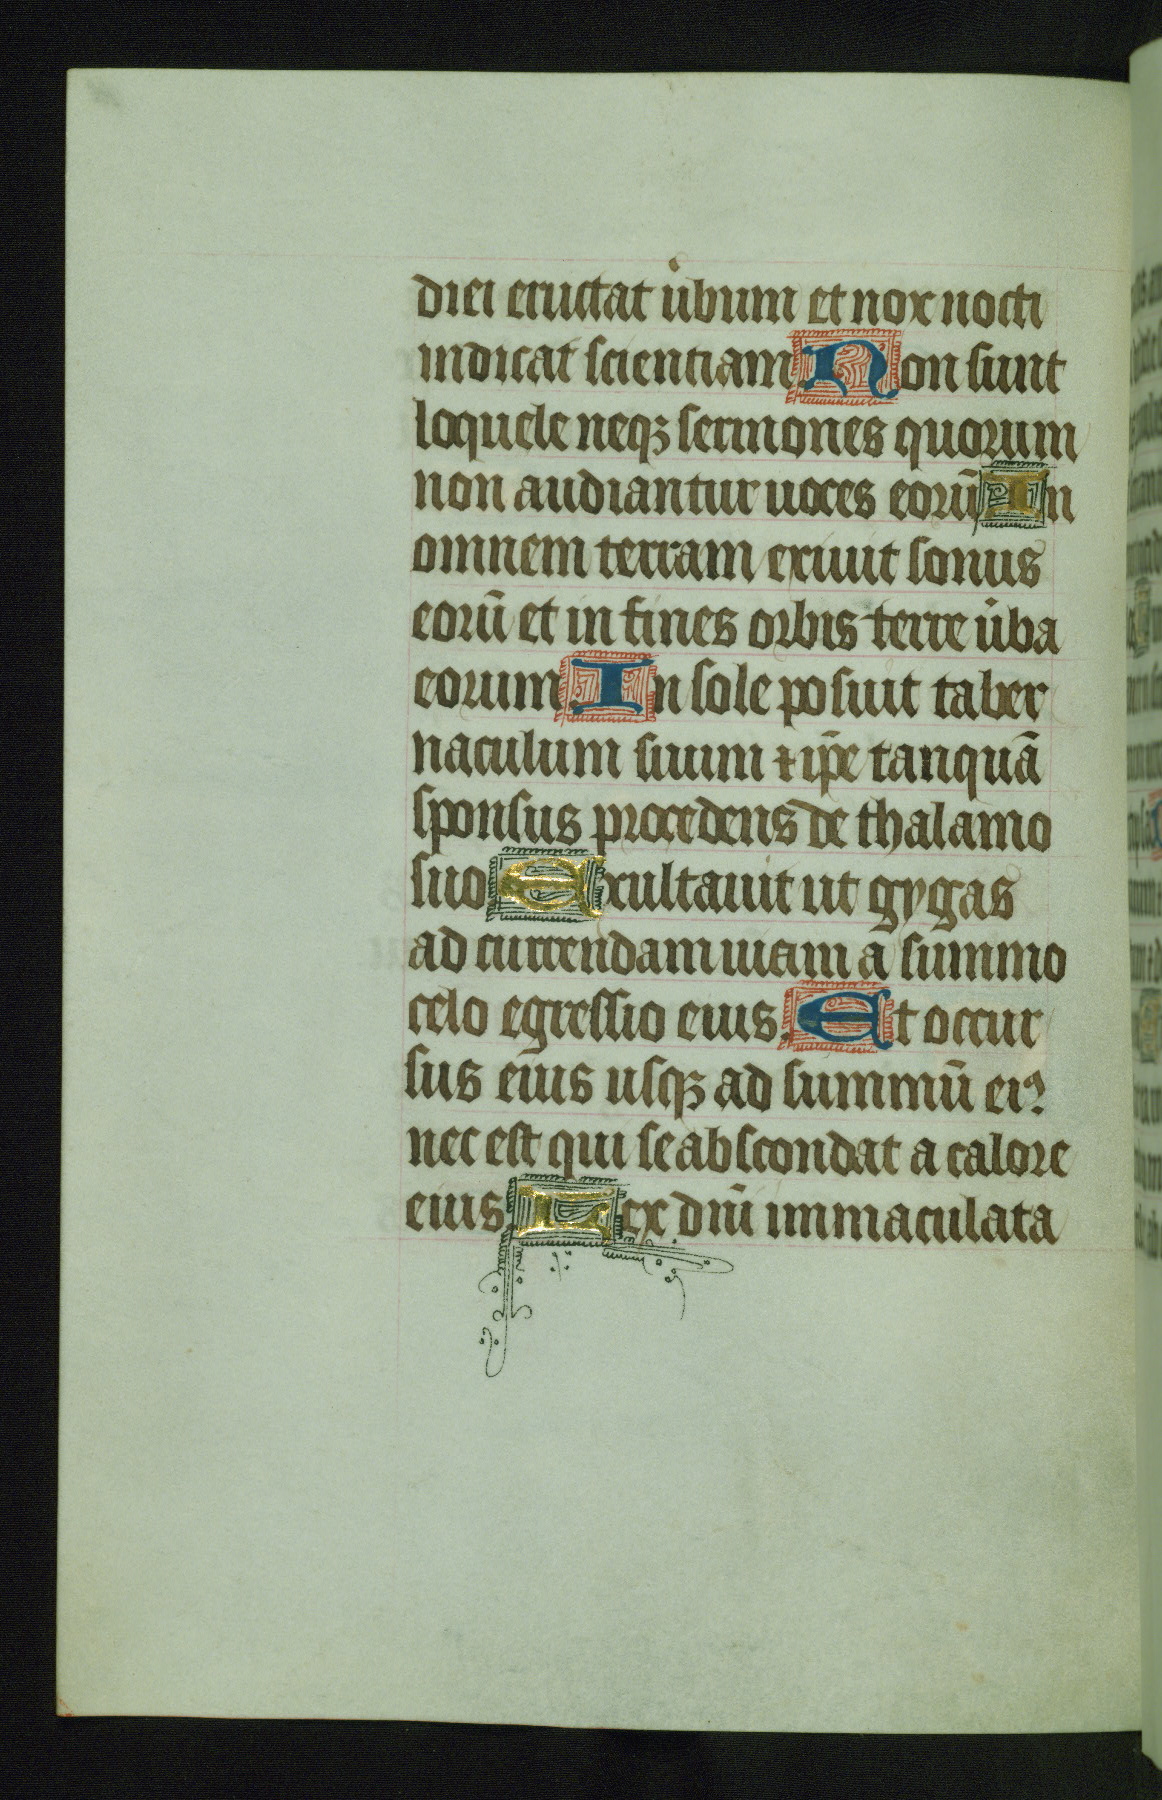 diei eructat u̇bum et nox nocti
indicat scientiam. Non sunt
loquele neqꝫ sermones quorum
non audiantur uoces eorū In
omnem terram exiuit sonus
eorū et in fines orbis terre u̇ba
eorum. In sole posuit taber
naculum suum ⁊ ip̄e tanquā
sponsus procedens de thalamo
suo Exultauit ut gygas
ad currendam uiam a summo
celo egressio eius. Et occur
sus eius usqꝫ ad summū eiꝰ
nec est qui se abscondat a calore
eius. Lex dn̄i immaculata